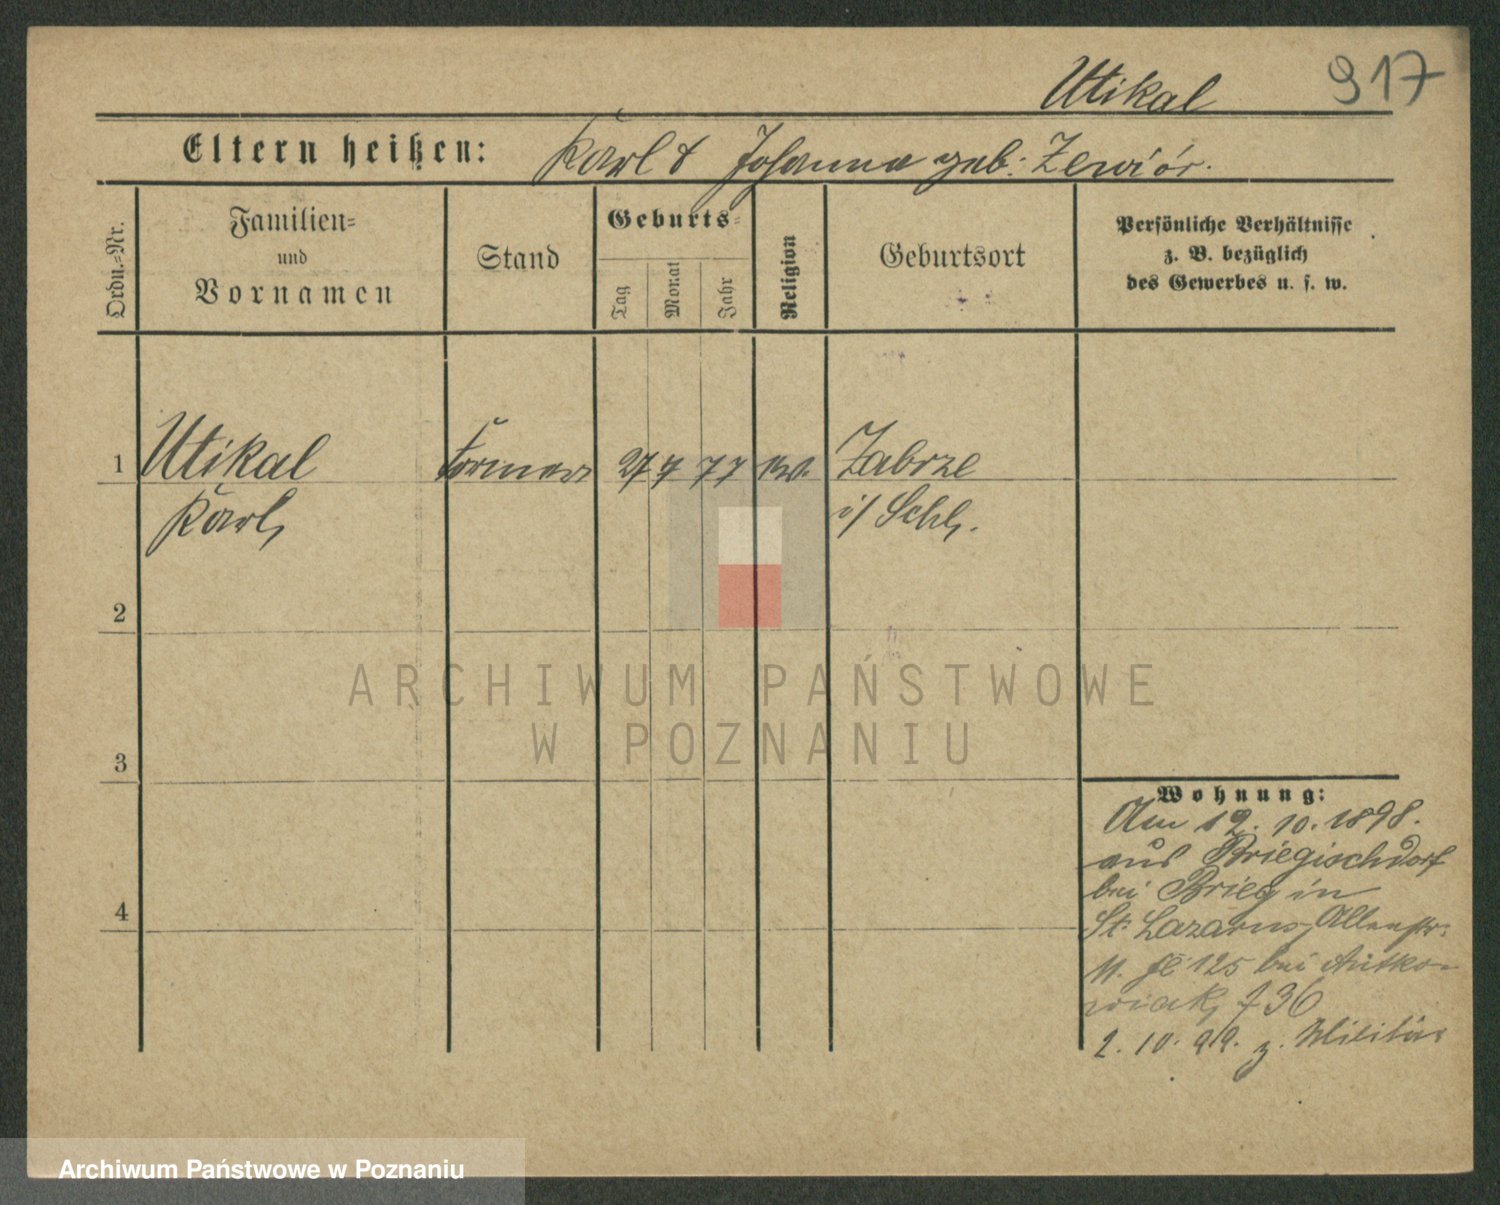 Utikal 917
Eltern heißen: Karl & Johanna geb: Zewiór.
Ordn.-Nr.
Familien-
und
Vornamen
Stand
Geburts-
Tag
Monat
Jahr
Religion
Geburtsort
Persönliche Verhältnisse
z. B. bezüglich
des Gewerbes u. s. w.
1 Utikal Former 27 7 77 kt. Zabrze
Karl, i/ Schl.
2
3
4
Wohnung:
Am 12. 10. 1898.
aus Briegischdorf
bei Brieg in
St. Lazarus,
125 bei
wiak, f 36
2. 10. 99. z. Militär
ARCHIWUM PAŃSTWOWE
W POZNANIU
Archiwum Państwowe w Poznaniu